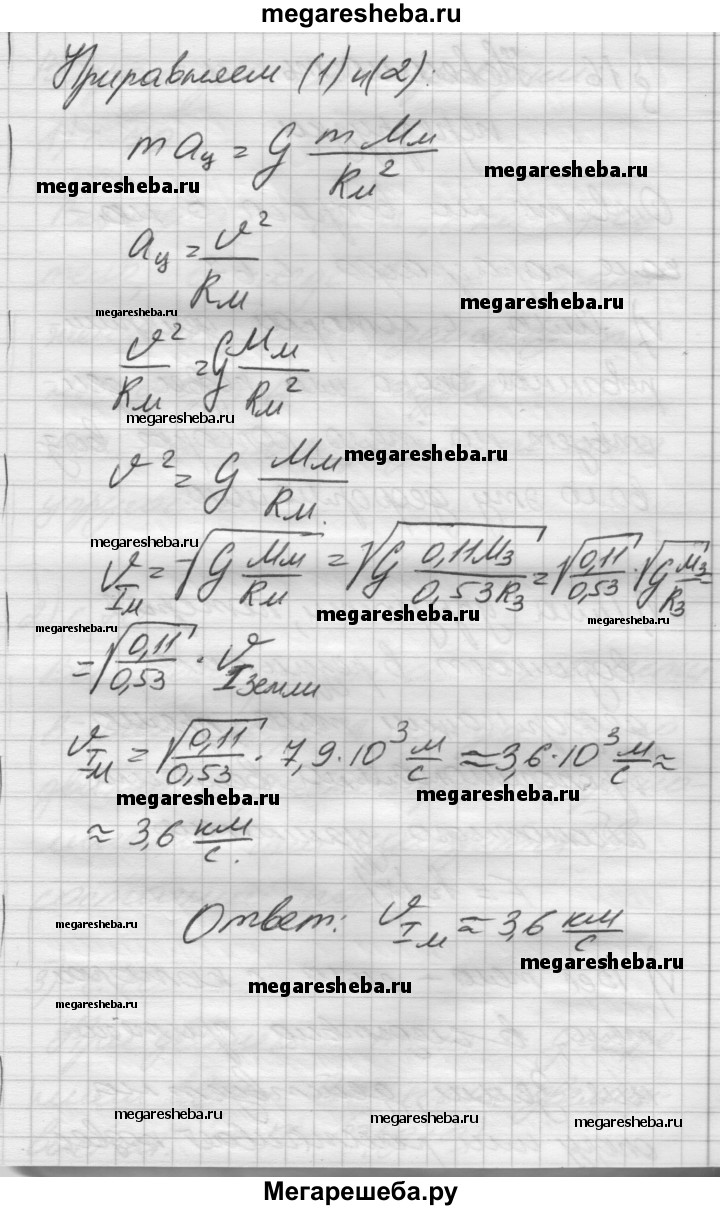 megaresheba.ru
Приравняем (1) и (2):
m aц = G m Mм / Rм²
megaresheba.ru
megaresheba.ru
aц = v² / Rм
megaresheba.ru
megaresheba.ru
v² / Rм = G Mм / Rм²
megaresheba.ru
megaresheba.ru
v² = G Mм / Rм.
megaresheba.ru
vIм = √(G Mм / Rм) = √(G 0,11Mз / 0,53Rз) = √(0,11 / 0,53) · √(G Mз / Rз) =
megaresheba.ru
megaresheba.ru
megaresheba.ru
= √(0,11 / 0,53) · vI Земли
vIм = √(0,11 / 0,53) · 7,9·10³ м/с ≈ 3,6·10³ м/с ≈
megaresheba.ru
megaresheba.ru
≈ 3,6 км/с.
Ответ: vIм ≈ 3,6 км/с
megaresheba.ru
megaresheba.ru
megaresheba.ru
megaresheba.ru
megaresheba.ru
megaresheba.ru
megaresheba.ru
Мегарешеба.ру